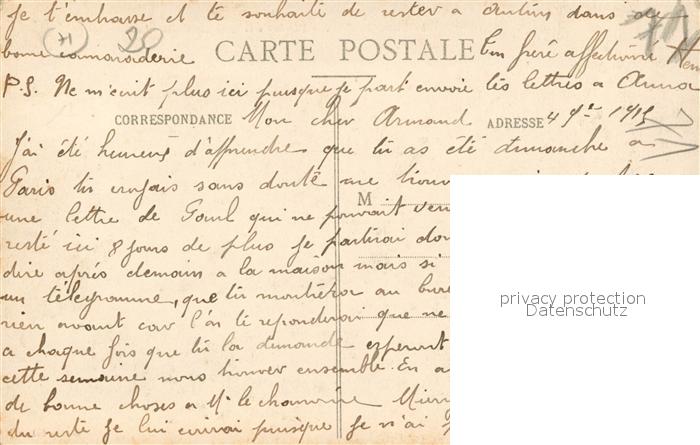 je t'embrasse et te souhaite de rester a dans de
bonne camaraderie Ton frère affectionné Hen
CARTE POSTALE
P.S. Ne m'écrit plus ici puisque je part envoie tes lettres a
CORRESPONDANCE Mon cher Armand ADRESSE 4 1915
J'ai été heureux d'apprendre que tu as été dimanche a
Paris tu croyais sans doute me trouv
M
une lettre de qui ne pouvait ven
resté ici 8 jours de plus Je partirai don
dire après demain a la maison mais si
un télégramme, que tu montrera au bure
rien avant car l'on te reponderai que ne
a chaque fois que tu la demande esperant
cette semaine nous trouver ensemble. En a
de bonne choses a Mr le chanoine
du reste Je lui ecrirai puisque Je n'ai p
privacy protection
Datenschutz